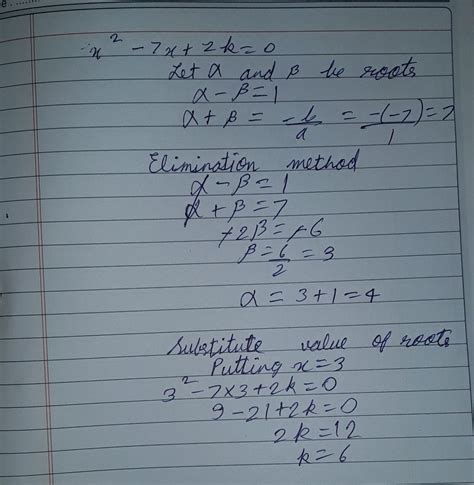 x² - 7x + 2k = 0
Let α and β be roots
α - β = 1
α + β = -b/a = -(-7)/1 = 7
Elimination method
α - β = 1
α + β = 7
-2β = -6
β = 6/2 = 3
α = 3 + 1 = 4
Substitute value of roots
Putting x = 3
3² - 7×3 + 2k = 0
9 - 21 + 2k = 0
2k = 12
k = 6